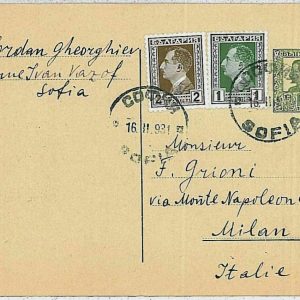 Jordan Gheorghiev
rue Ivan Vazof
Sofia
БЪЛГАРИЯ
2 2
БЪЛГАРИЯ
1 1
СОФИЯ
16.II.931
SOFIA
SOFIA
Monsieur
F. Grioni
via Monte Napoleon
Milan
Italie